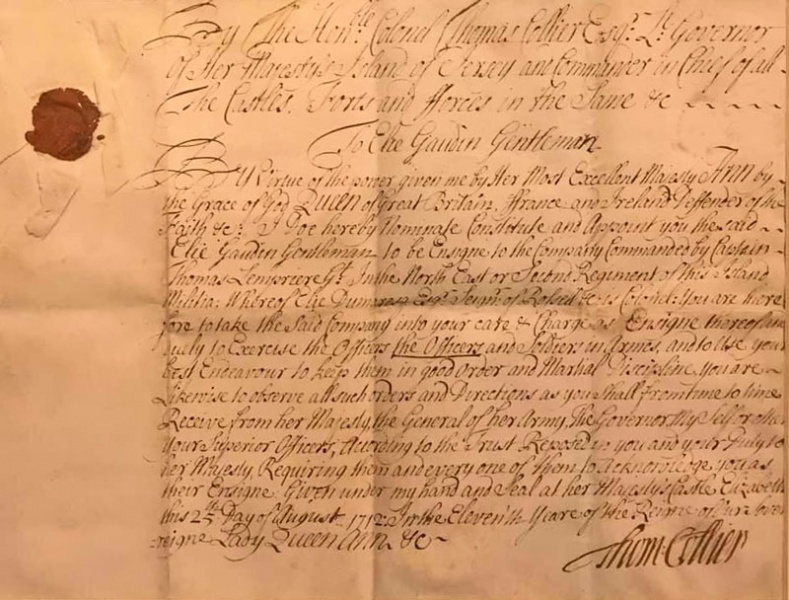 By The Hon:ble Colonel Thomas Collier Esqr. Lt. Governor
of Her Majesty's Island of Jersey and Commander in Chief of all
The Castles, Forts and fforces in the Same &c
To Elie Gaudin Gentleman
By Virtue of the power given me by Her Most Excellent Majesty Ann by
the Grace of God Queen of Great Britain, ffrance and Ireland Deffender of the
Faith &c. I Doe hereby Nominate Constitute and Appoint you the said
Elie Gaudin Gentleman to be Ensigne to the Company Commanded by Captain
Thomas Lempriere Gt. In the North East or Second Regiment of this Island
Militia: Whereof Elie Dumaresq Esqr. Seignr. of &c is Colonel: You are there
fore to take the Said Company into your care & Charge as Ensigne thereof an
duly to Exercise the Officers the Officers and Soldiers in Armes, and to Use your
best Endeavour to keep them in good Order and Martial Discipline, you are
Likewise to observe all such orders and Directions as you Shall from time to time
Receive from her Majesty, the General of her Army, The Governor, My Self or other
your Superior Officers, According to the Trust Reposed in you and your Duty to
her Majesty Requiring them and every one of them to Acknowledge you as
their Ensigne. Given under my hand and Seal at her Majesty's Castle Elizabeth
this 2th Day of August 1712. In the Eleventh Yeare of the Reigne of Our Sove
reigne Lady Queen Ann. &c
Thom: Collier